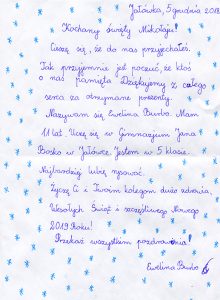 Jałówka, 5 grudnia 2018
Kochany święty Mikołaju!
Cieszę się, że do nas przyjechałeś.
Tak przyjemnie jest poczuć, że ktoś
o nas pamięta. Dziękujemy z całego
serca za otrzymane prezenty.
Nazywam się Ewelina Burba. Mam
11 lat. Uczę się w Gimnazjum Jana
Bosko w Jałówce. Jestem w 5 klasie.
Najbardziej lubię rysować.
Życzę Ci i Twoim kolegom dużo zdrowia,
Wesołych Świąt i szczęśliwego Nowego
2019 Roku!
Przekaż wszystkim pozdrowienia!
Ewelina